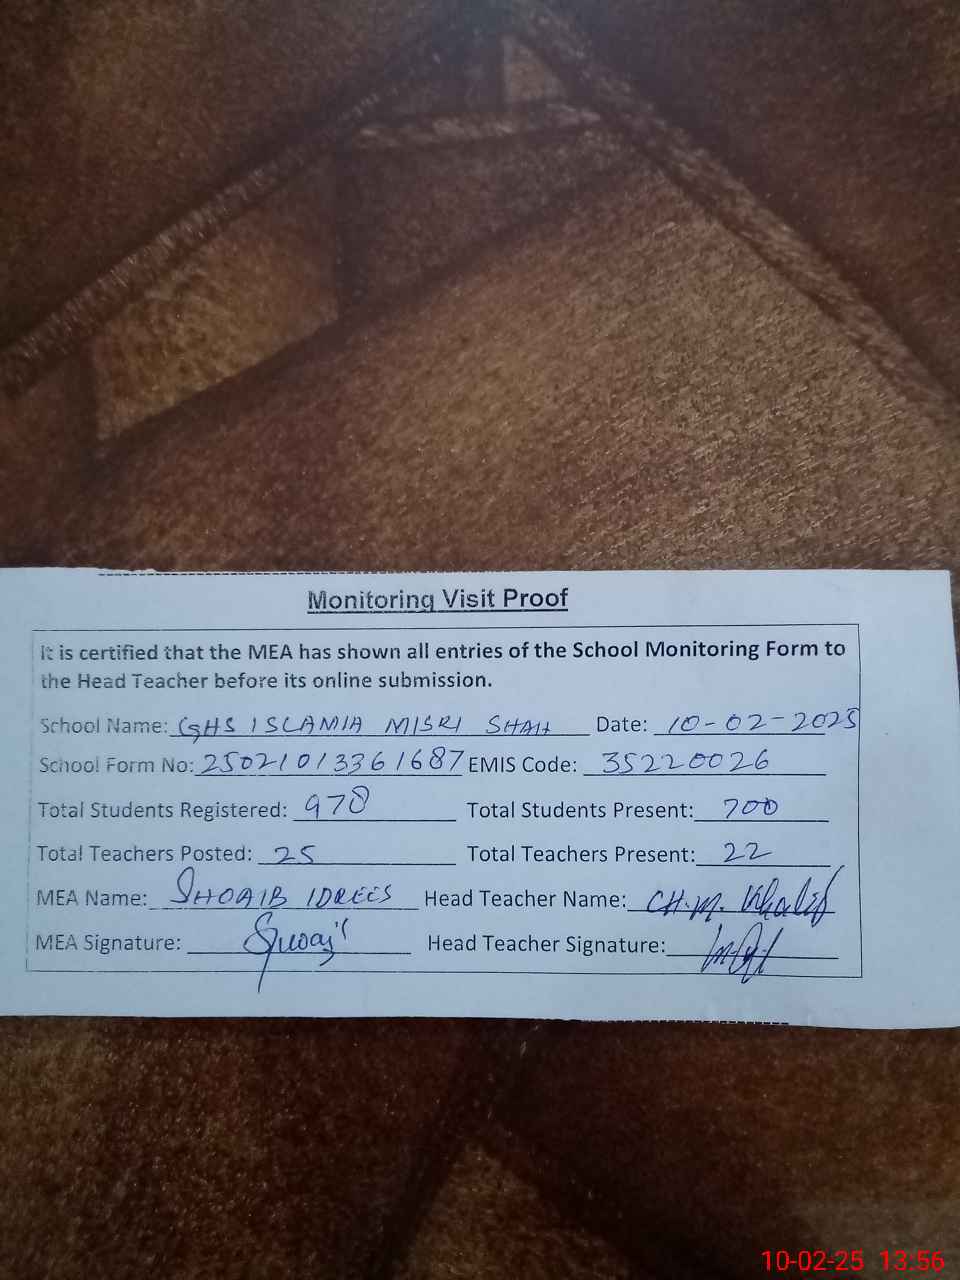 Monitoring Visit Proof
It is certified that the MEA has shown all entries of the School Monitoring Form to
the Head Teacher before its online submission.
School Name: GHS ISLAMIA MISRI SHAH Date: 10-02-2025
School Form No: 25021013361687 EMIS Code: 35220026
Total Students Registered: 978 Total Students Present: 700
Total Teachers Posted: 25 Total Teachers Present: 22
MEA Name: SHOAIB IDREES Head Teacher Name: CH.M. Khalid
MEA Signature: Head Teacher Signature:
10-02-25 13:56